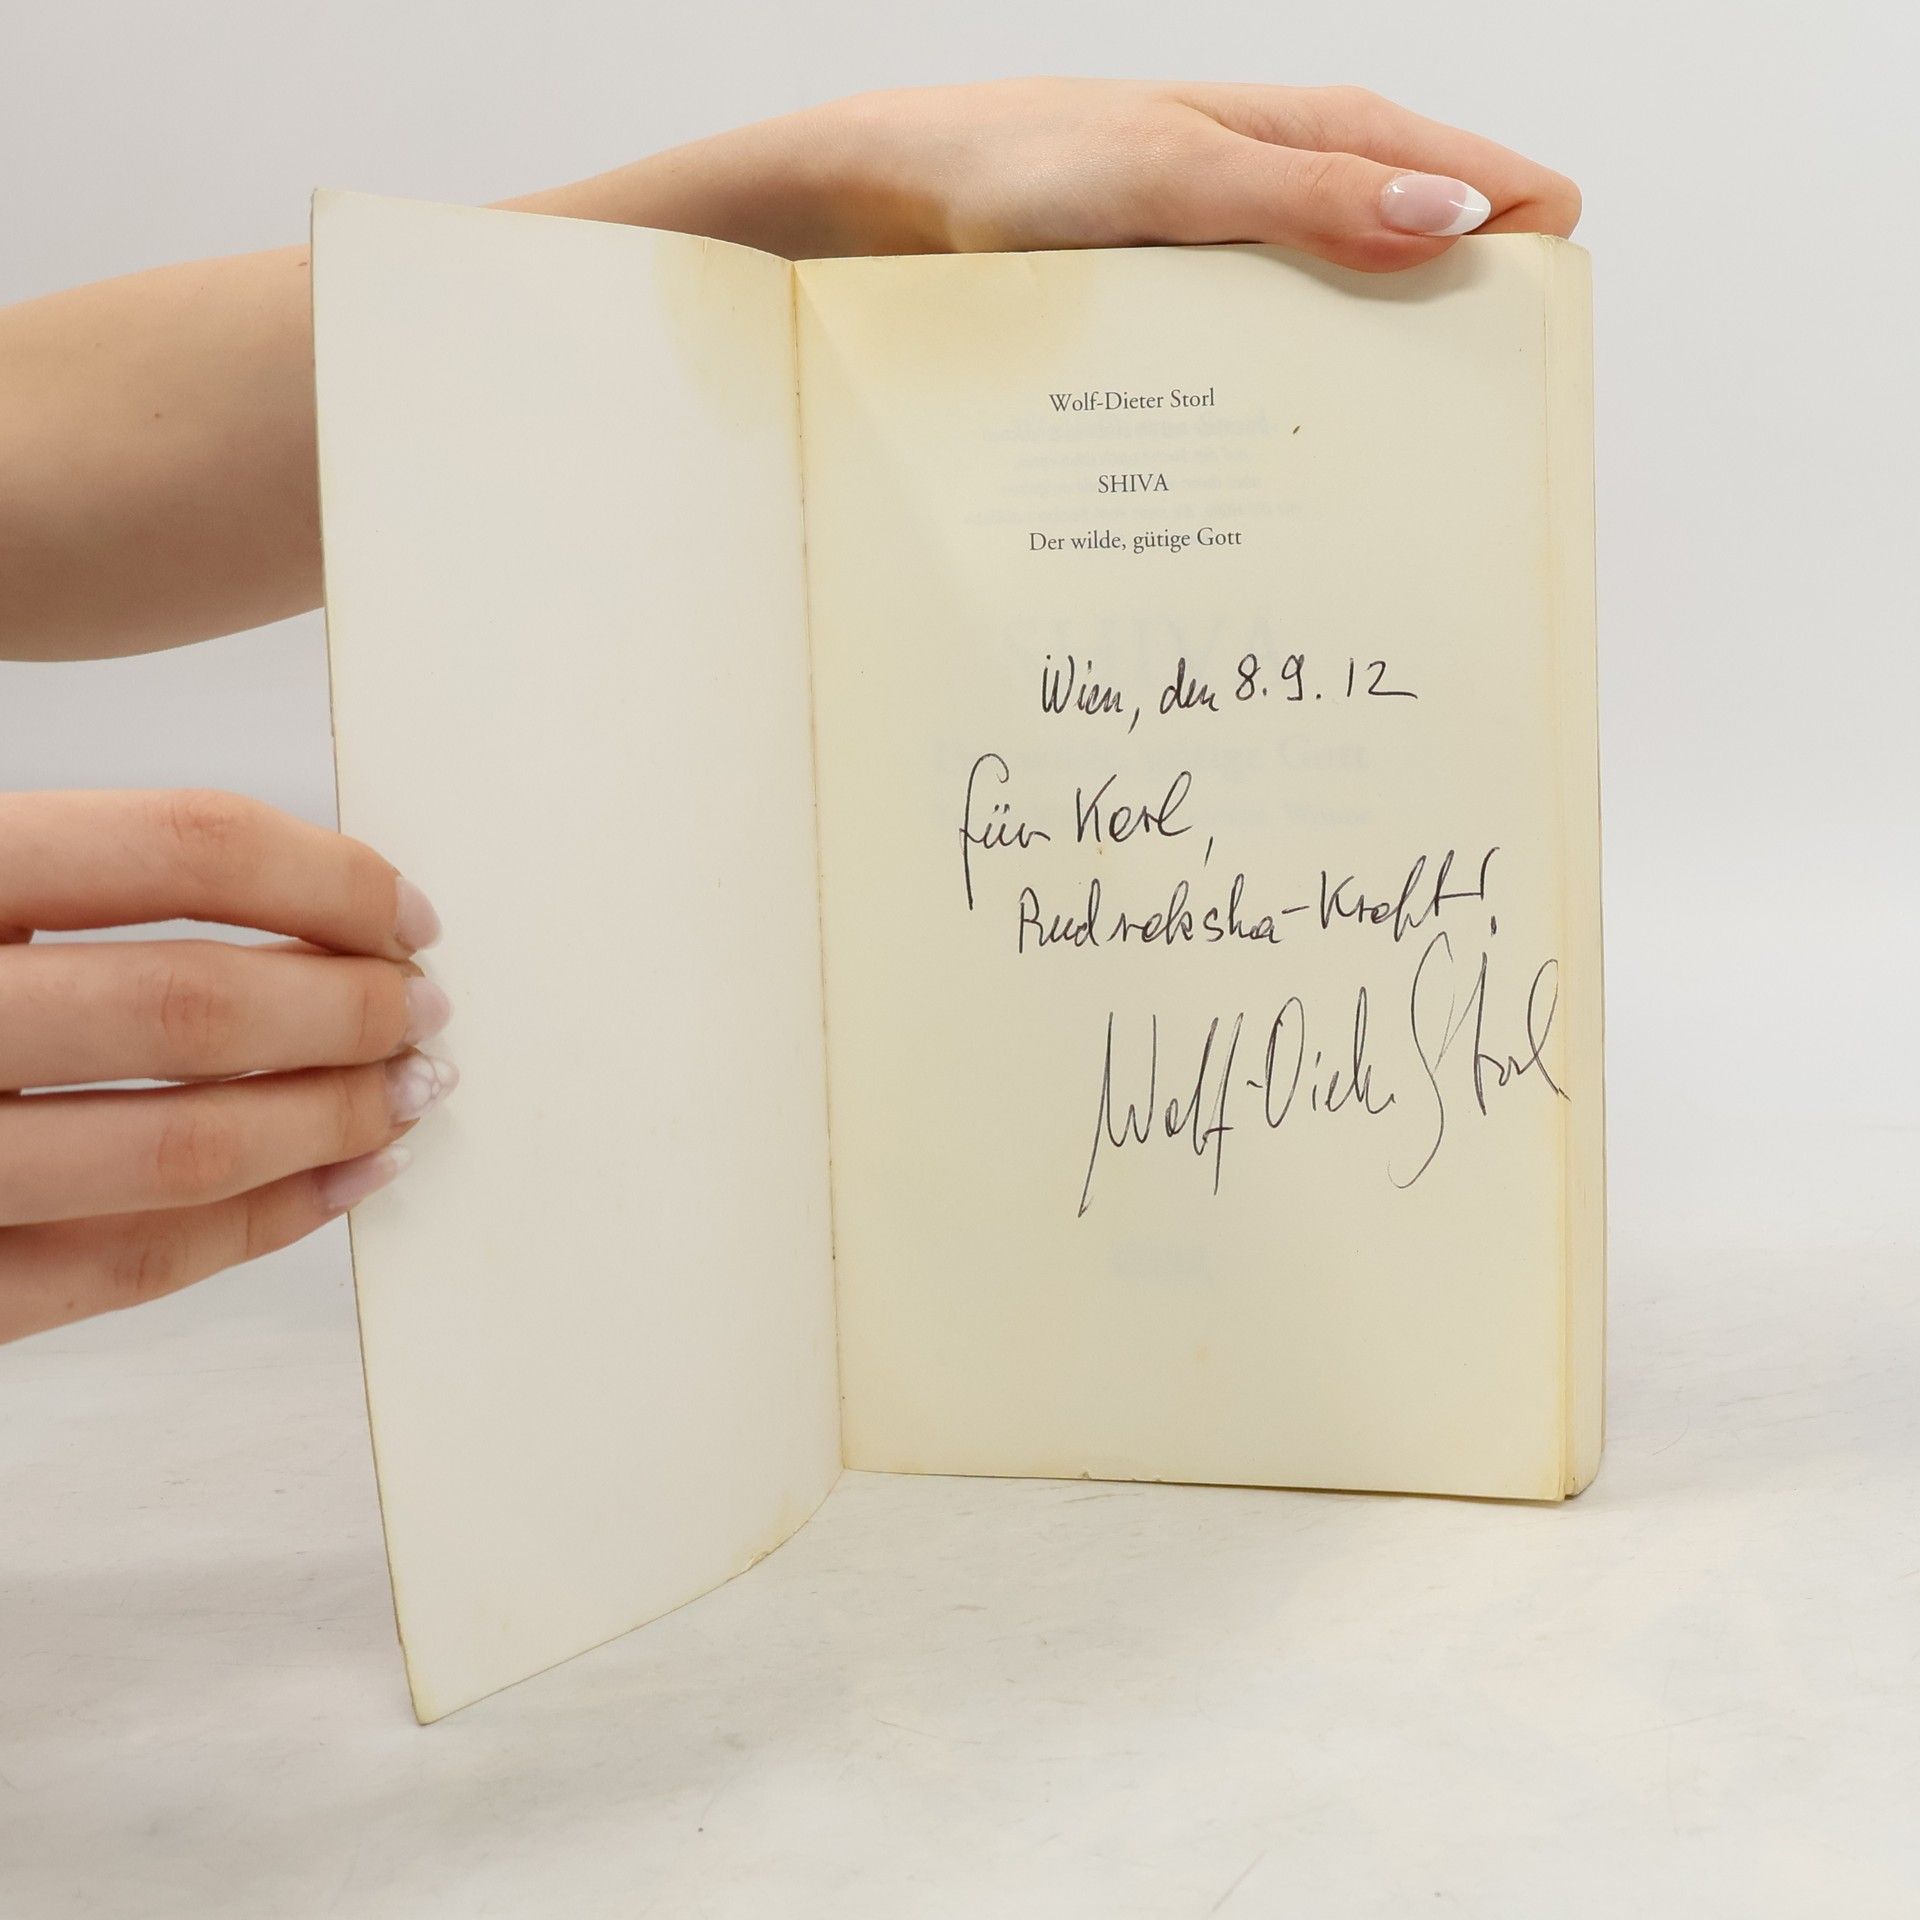 Wolf-Dieter Storl
SHIVA
Der wilde, gütige Gott
Wien, den 8.9.12
für Karl,
Rudraksha-Kraft!
Wolf-Dieter Storl